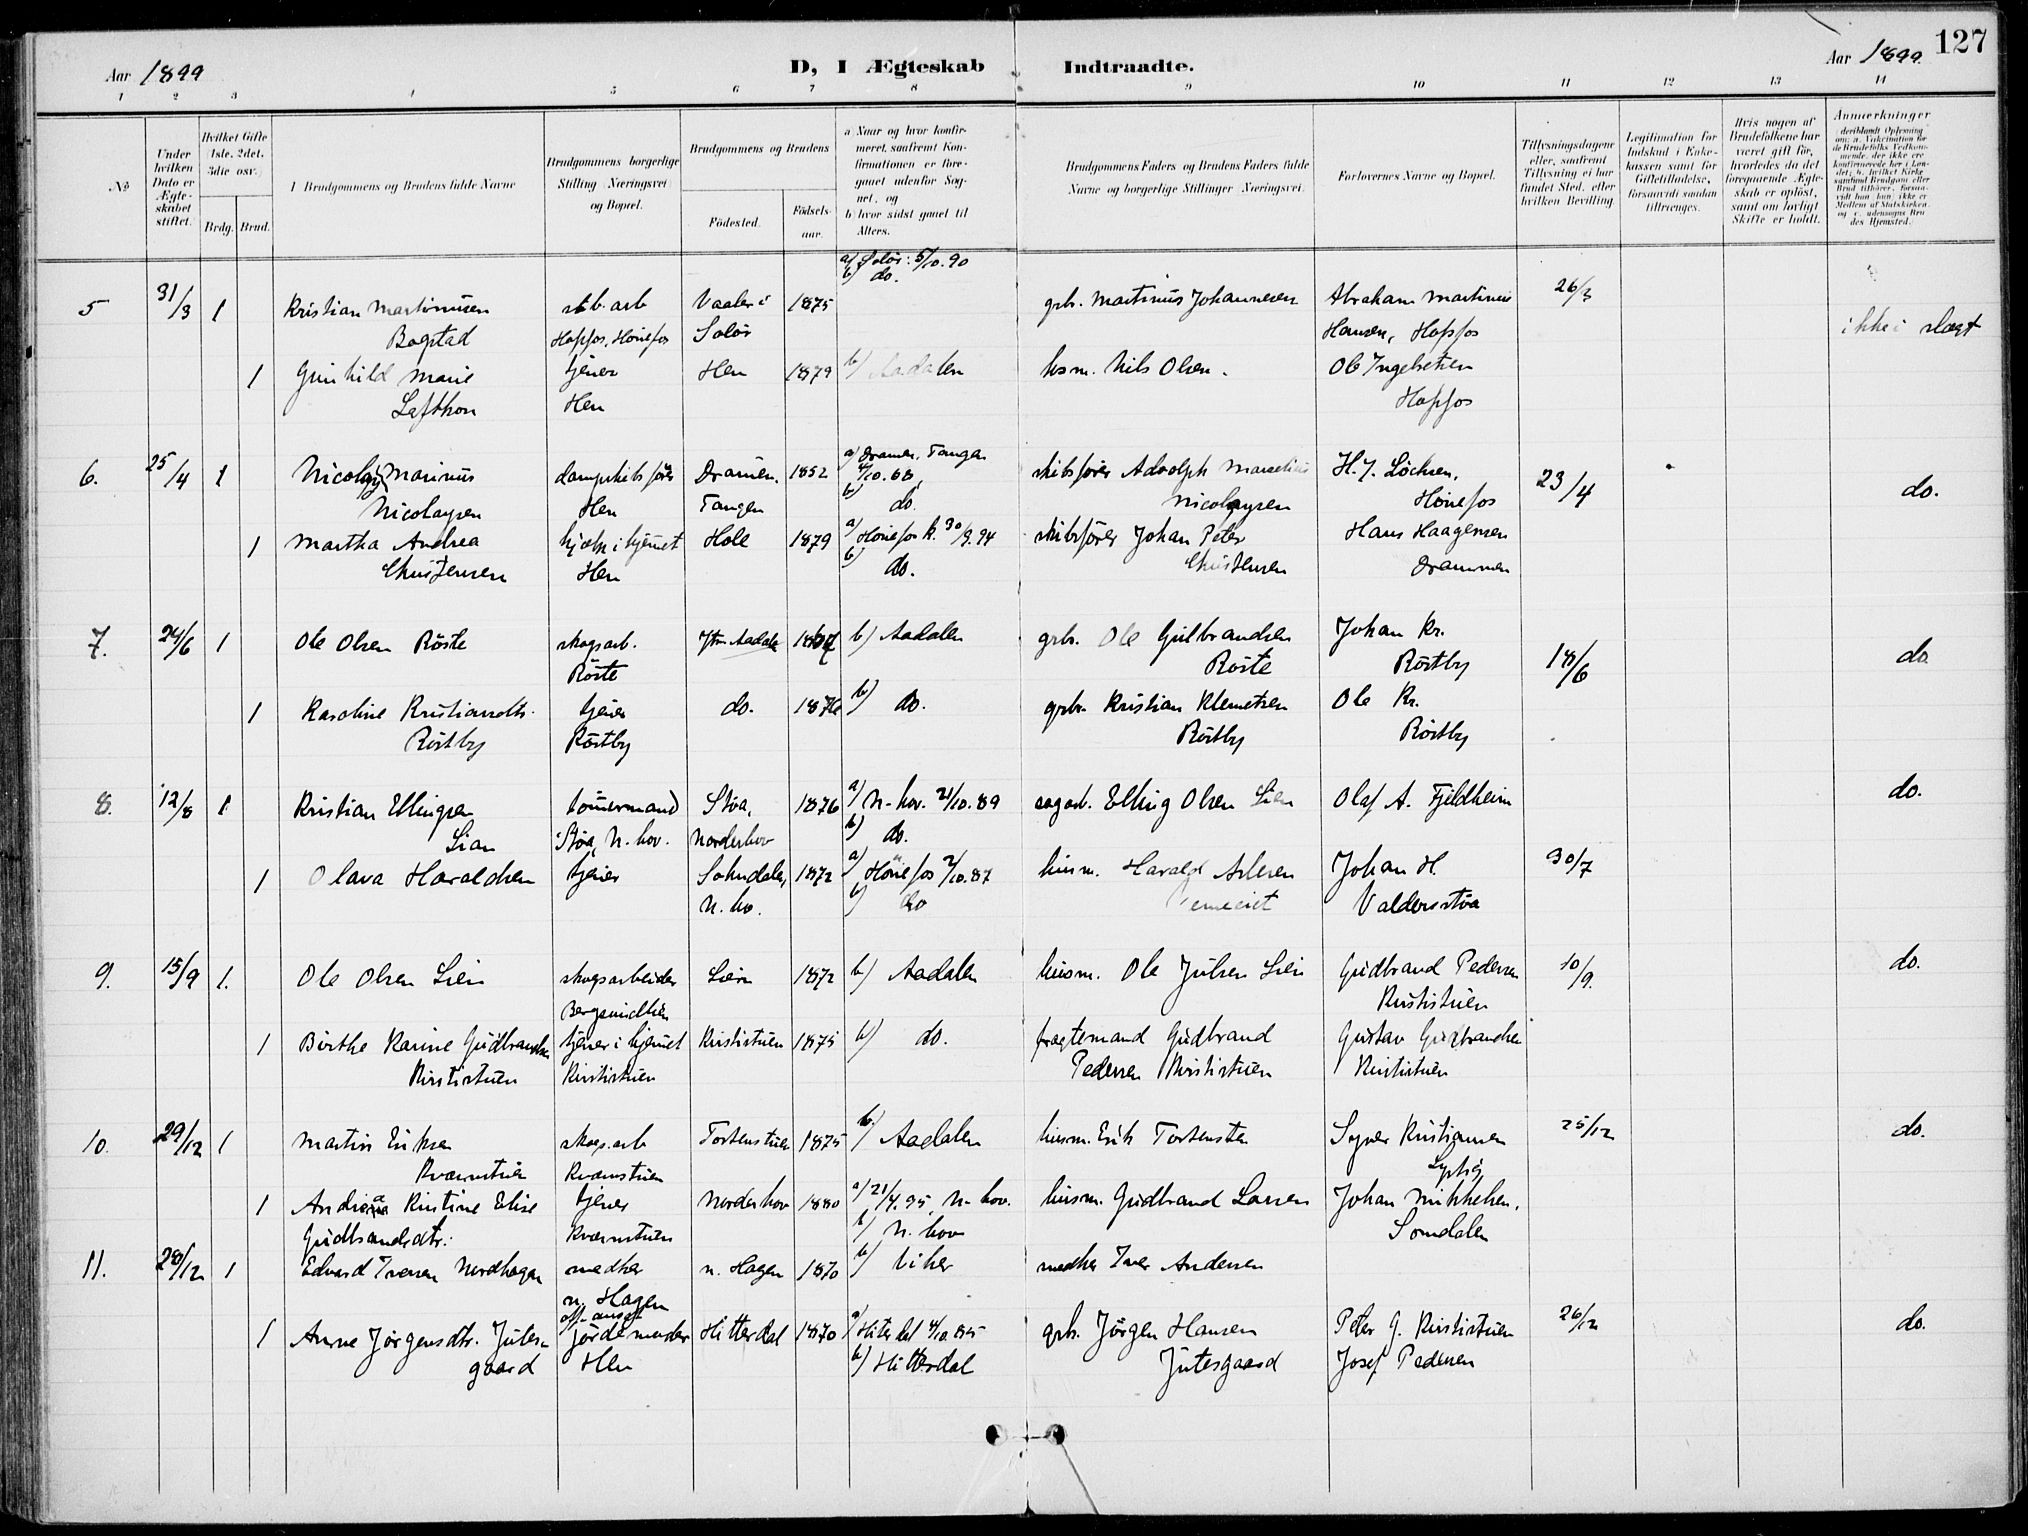 Aar 1899
D, I Ægteskab Indtraadte.
Aar 1899. 127
1 2 3 4 5 6 7 8 9 10 11 12 13 14
No
Under hvilken Dato er Ægteskabet stiftet.
Hvilket Gifte (1ste, 2det, 3die osv.)
Brdg. Brud.
Brudgommens og Brudens fulde Navne
Brudgommens borgerlige Stilling (Næringsvei) og Bopæl.
Brudgommens og Brudens
Födested. Födselsaar.
a Naar og hvor konfirmeret, saafremt Konfirmationen er foregaaet udenfor Sognet, og
b) hvor sidst gaaet til Alters.
Brudgommens Faders og Brudens Faders fulde Navne og borgerlige Stillinger (Næringsvei.
Forlovernes Navne og Bopæl.
Tillysningsdagene eller, saafremt Tillysning ei har fundet Sted, efter hvilken Bevilling.
Legitimation for Indskud i Enkekassen samt for Giftetilladelse, forsaavidt saadan tiltrænges.
Hvis nogen af Brudefolkene har været gift för, hvorledes da det foregaaende Ægteskab er oplöst, samt om lovligt Skifte er holdt.
Anmærkninger
5 31/3 1 Kristian Martinusen arb Vaaler i 1875 a) Solör: 5/10.90 grb. Martinus Johannesen Abraham Martinus 26/3 ikke i slægt
Bagstad Hofsfos, Hönefos Solör b) do. Hansen, Hofsfos
1 Gunhild Marie tjener Hen 1879 b) Aadalen husm. Nils Olsen. Ole Ingebretsen
Lafthon Hen Hofsfos
6. 25/4 1 Nicolay Marinus dampskibsförer Dramen. 1852 a) Dramen, Tangen skibsförer Adolph Marselius H. J. Löchsen, 23/4 do.
Nicolaysen Hen Tangen 4/10.68, b) do. Nicolaysen Hönefos
1 Martha Andrea hjælp i hjemmet Hole 1879 a) Hönefos k. 30/9.94 skibsförer Johan Peter Hans Haagensen
Christensen Hen b) do. Christensen Drammen
7. 24/6 1 Ole Olsen Röste skogsarb. Ytre Aadalen b) Aadalen grb. Ole Gulbrandsen Johan Kr. 18/6 do.
Röste Röste Röstby
1 Karoline Kristiansdtr. tjener do. 1876 b) do. grbr. Kristian Klemetsen Ole Kr.
Röstby Röstby Röstby Röstby
8. 12/8 1 Kristian Ellingsen tömmermand Støa, 1876 a) N-hov. 2/10.89 sagarb. Elling Olsen Lien Olaf A. Fjeldheim do.
Lian Støa, N. hov. Norderhov b) do.
1 Olava Haraldsen tjener Sokndalen, 1872 a) Hönefos 2/10.87 husm. Harald Arlesen Johan H. 30/7
N. hov. b) do Valdersstöa
9. 15/9 1. Ole Olsen Lien skogsarbeider Lien 1872 b) Aadalen husm. Ole Julsen Lien Gudbrand Pedersen 10/9. do.
Bergsundlien Kirstistuen
1 Birthe Karine Gudbrandsen tjener i hjemmet Kirstistuen 1875 b) do. fragtemand Gudbrand Gustav Gudbrandsen
Kirstistuen Kirstistuen Pedersen Kirstistuen Kirstistuen
10. 29/12 1 Martin Eriksen skogs.arb Tostenstuen 1875 b) Aadalen husm. Erik Tostensten Syver Kristiansen 25/12 do.
Kværnstuen Kværnstuen
1 Andrea Kristine Elise tjener Norderhov 1880 a) 21/4.95, N-hov. husm. Gudbrand Larsen Johan Mikkelsen,
Gudbrandsdtr. Kværnstuen b) N. hov Somdalen
11. 28/12 1 Edvard Iversen Nordhagen snedker n. Hagen 1870 b) Viker snedker Iver Andersen
n. Hagen
1 Anne Jörgensdtr. Jutes- off. ansat jordemoder Hitterdal 1870 a) Hiterdal 4/10.85 grb. Jörgen Hansen Peter G. Kirstistuen 26/12 do.
gaard Hen b) Hitterdal Jutesgaard Josef Pedersen